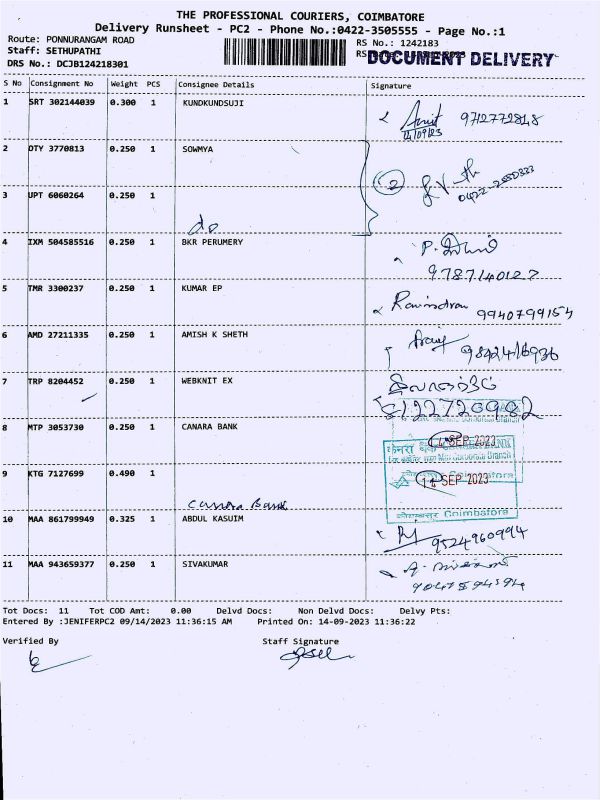 THE PROFESSIONAL COURIERS, COIMBATORE
Delivery Runsheet - PC2 - Phone No.:0422-3505555 - Page No.:1
Route: PONNURANGAM ROAD RS No.: 1242183
Staff: SETHUPATHI DOCUMENT DELIVERY
DRS No.: DCJB124218301
S No Consignment No Weight PCS Consignee Details Signature
1 SRT 302144039 0.300 1 KUNDKUNDSUJI 9712772848
14/09/23
2 OTY 3770813 0.250 1 SOWMYA
3 UPT 6060264 0.250 1
do
4 IXM 504585516 0.250 1 BKR PERUMERY
9787140127
5 TMR 3300237 0.250 1 KUMAR EP Ravindran 9940799154
6 AMD 27211335 0.250 1 AMISH K SHETH 9842416936
7 TRP 8204452 0.250 1 WEBKNIT EX
8122720982
8 MTP 3053730 0.250 1 CANARA BANK
14 SEP 2023
9 KTG 7127699 0.490 1 14 SEP 2023
Canara Bank
Coimbatore
10 MAA 861799949 0.325 1 ABDUL KASUIM 9524960994
11 MAA 943659377 0.250 1 SIVAKUMAR
Tot Docs: 11 Tot COD Amt: 0.00 Delvd Docs: Non Delvd Docs: Delvy Pts:
Entered By :JENIFERPC2 09/14/2023 11:36:15 AM Printed On: 14-09-2023 11:36:22
Verified By Staff Signature